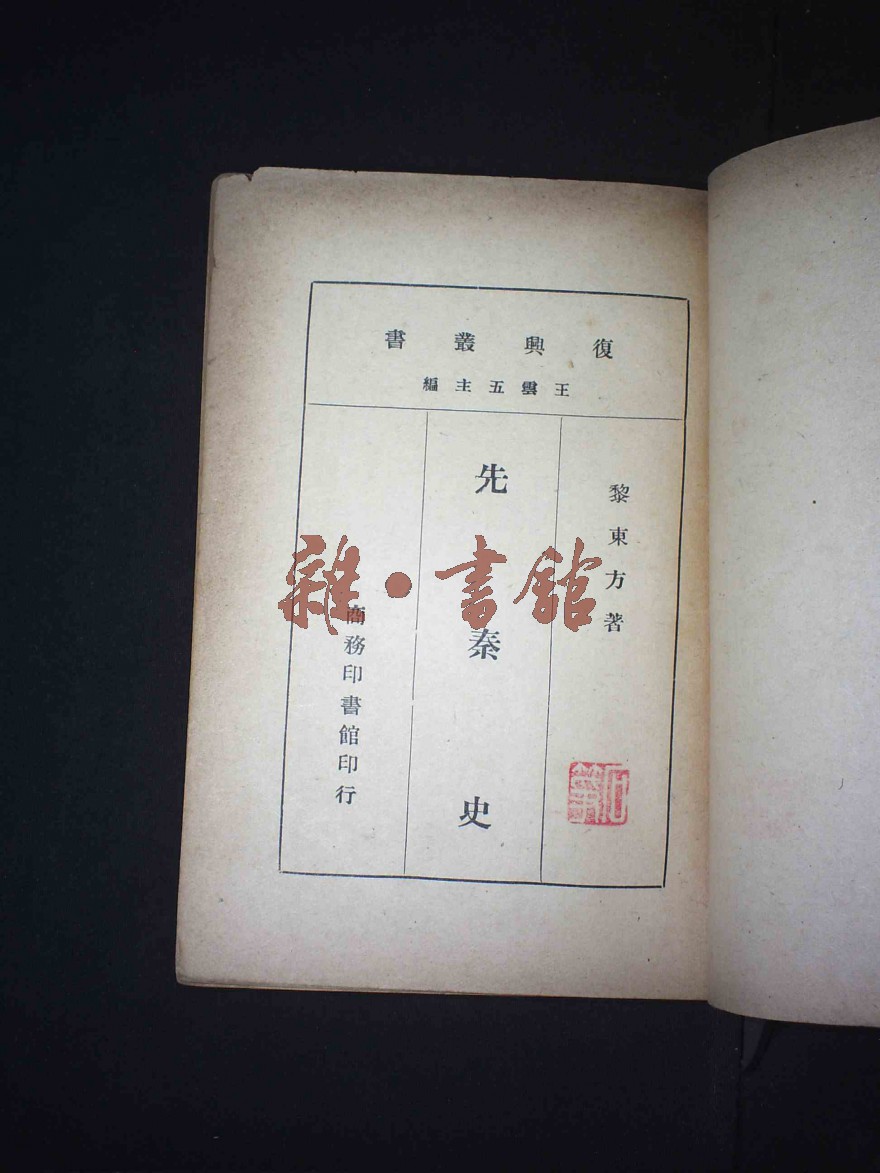 復興叢書
王雲五主編
黎東方著
先秦史
商務印書館印行
雜·書館